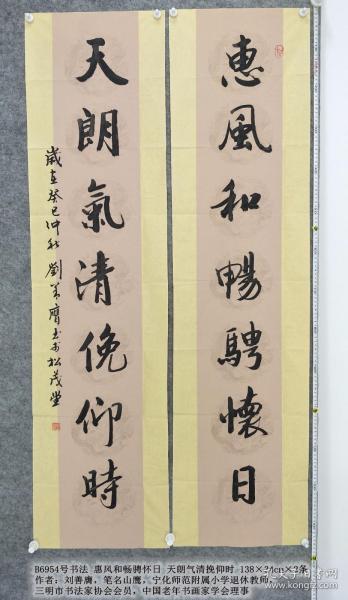 惠風和暢騁懷日
天朗氣清俛仰時
歲在癸巳仲秋 劉善膺書於松茂堂
B6954号书法 惠风和畅骋怀日 天朗气清挽仰时 138×24cm×2条
作者：刘善膺，笔名山鹰，宁化师范附属小学退休教师，
三明市书法家协会会员，中国老年书画家学会理事